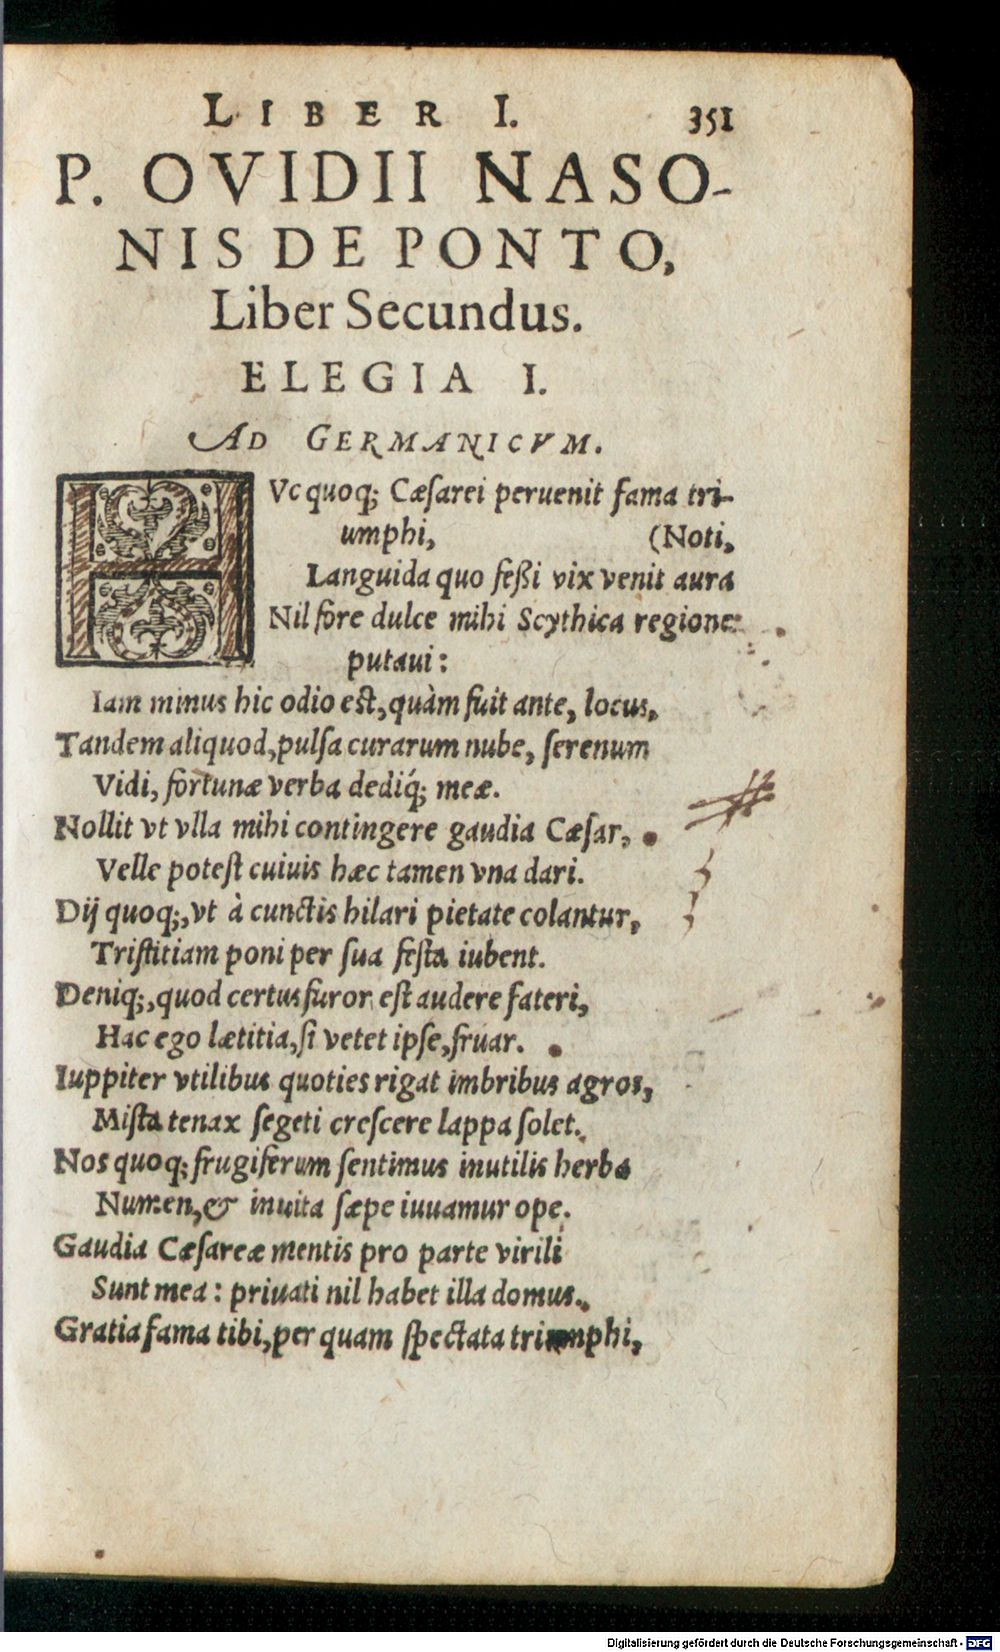 LIBER I. 351
P. OVIDII NASO-
NIS DE PONTO,
Liber Secundus.
ELEGIA I.
AD GERMANICVM.
HVc quoq; Cæsarei peruenit fama tri-
umphi, (Noti,
Languida quo feßi vix venit aura
Nil fore dulce mihi Scythica regione
putaui:
Iam minus hic odio est, quàm fuit ante, locus.
Tandem aliquod, pulsa curarum nube, serenum
Vidi, fortunæ verba dediq́; meæ.
Nollit vt vlla mihi contingere gaudia Cæsar,
Velle potest cuiuis hæc tamen vna dari.
Dij quoq;, vt à cunctis hilari pietate colantur,
Tristitiam poni per sua festa iubent.
Deniq;, quod certus furor est audere fateri,
Hac ego lætitia, si vetet ipse, fruar.
Iuppiter vtilibus quoties rigat imbribus agros,
Mista tenax segeti crescere lappa solet.
Nos quoq; frugiferum sentimus inutilis herba
Numen, & inuita sæpe iuuamur ope.
Gaudia Cæsareæ mentis pro parte virili
Sunt mea: priuati nil habet illa domus.
Gratia fama tibi, per quam spectata triumphi,
Digitalisierung gefördert durch die Deutsche Forschungsgemeinschaft - DFG